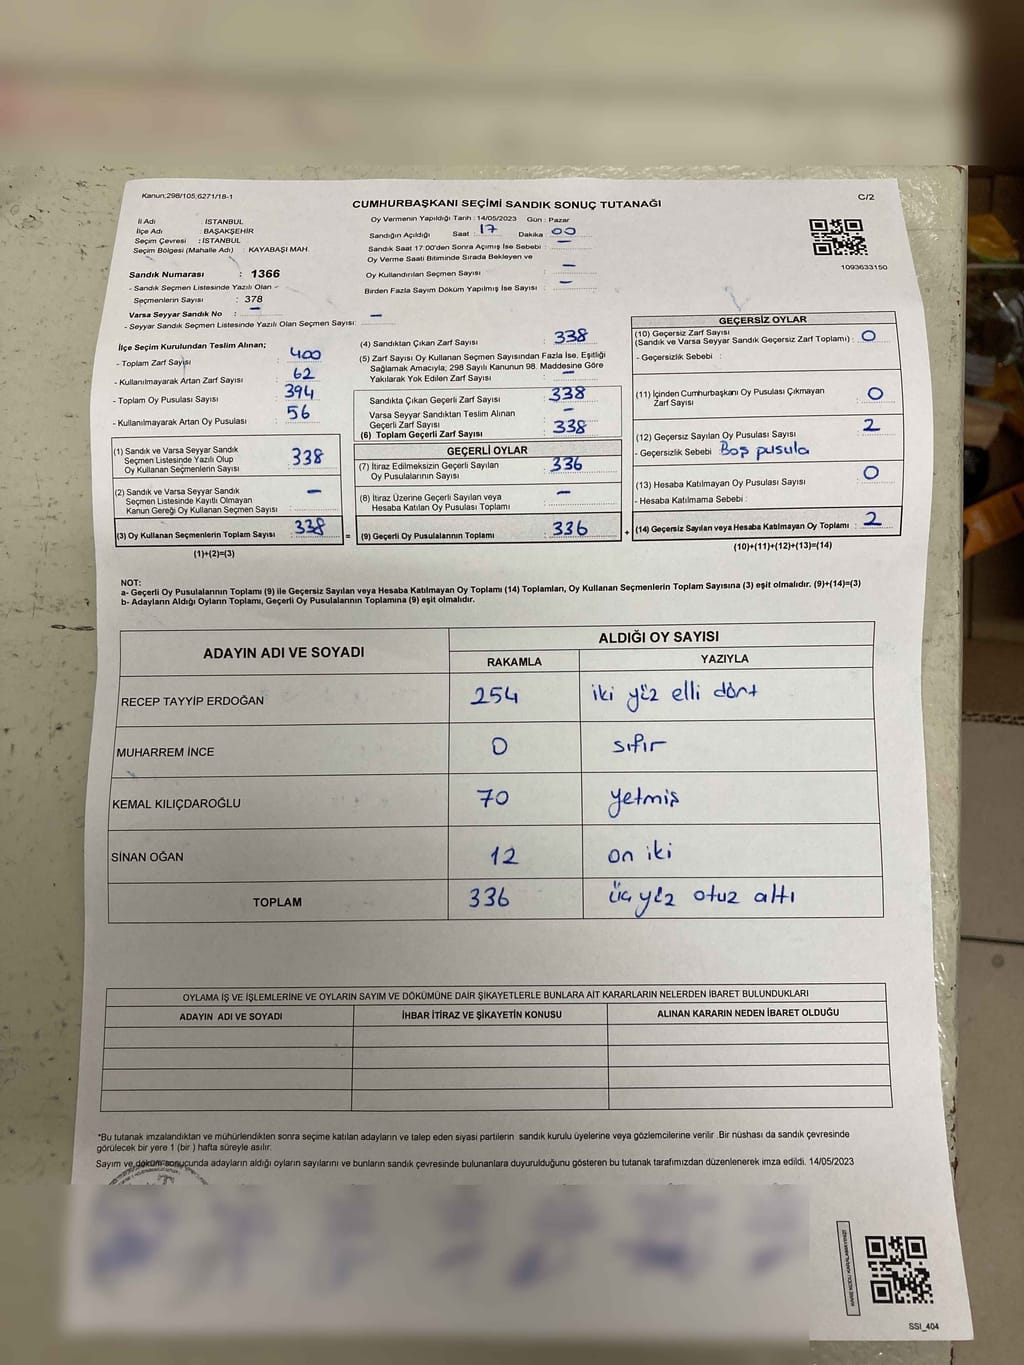 Kanun;298/105;6271/18-1
C/2
CUMHURBAŞKANI SEÇİMİ SANDIK SONUÇ TUTANAĞI
İl Adı : İSTANBUL
İlçe Adı : BAŞAKŞEHİR
Seçim Çevresi : İSTANBUL
Seçim Bölgesi (Mahalle Adı) : KAYABAŞI MAH.
Sandık Numarası : 1366
- Sandık Seçmen Listesinde Yazılı Olan
Seçmenlerin Sayısı : 378
Varsa Seyyar Sandık No : -
- Seyyar Sandık Seçmen Listesinde Yazılı Olan Seçmen Sayısı: -
Oy Vermenin Yapıldığı Tarih : 14/05/2023 Gün : Pazar
Sandığın Açıldığı Saat : 17 Dakika : 00
Sandık Saat 17:00'den Sonra Açılmış İse Sebebi : -
Oy Verme Saati Bitiminde Sırada Bekleyen ve
Oy Kullandırılan Seçmen Sayısı : -
Birden Fazla Sayım Döküm Yapılmış İse Sayısı : -
1093633150
İlçe Seçim Kurulundan Teslim Alınan;
- Toplam Zarf Sayısı : 400
- Kullanılmayarak Artan Zarf Sayısı : 62
- Toplam Oy Pusulası Sayısı : 394
- Kullanılmayarak Artan Oy Pusulası : 56
(1) Sandık ve Varsa Seyyar Sandık
Seçmen Listesinde Yazılı Olup
Oy Kullanan Seçmenlerin Sayısı : 338
(2) Sandık ve Varsa Seyyar Sandık
Seçmen Listesinde Kayıtlı Olmayan
Kanun Gereği Oy Kullanan Seçmen Sayısı : -
(3) Oy Kullanan Seçmenlerin Toplam Sayısı : 338
(1)+(2)=(3)
(4) Sandıktan Çıkan Zarf Sayısı : 338
(5) Zarf Sayısı Oy Kullanan Seçmen Sayısından Fazla İse, Eşitliği
Sağlamak Amacıyla; 298 Sayılı Kanunun 98. Maddesine Göre
Yakılarak Yok Edilen Zarf Sayısı : -
Sandıkta Çıkan Geçerli Zarf Sayısı : 338
Varsa Seyyar Sandıktan Teslim Alınan
Geçerli Zarf Sayısı : -
(6) Toplam Geçerli Zarf Sayısı : 338
GEÇERLİ OYLAR
(7) İtiraz Edilmeksizin Geçerli Sayılan
Oy Pusulalarının Sayısı : 336
(8) İtiraz Üzerine Geçerli Sayılan veya
Hesaba Katılan Oy Pusulası Toplamı : -
= (9) Geçerli Oy Pusulalarının Toplamı : 336
GEÇERSİZ OYLAR
(10) Geçersiz Zarf Sayısı
(Sandık ve Varsa Seyyar Sandık Geçersiz Zarf Toplamı) : 0
- Geçersizlik Sebebi :
(11) İçinden Cumhurbaşkanı Oy Pusulası Çıkmayan
Zarf Sayısı : 0
(12) Geçersiz Sayılan Oy Pusulası Sayısı : 2
- Geçersizlik Sebebi : Boş pusula
(13) Hesaba Katılmayan Oy Pusulası Sayısı : 0
- Hesaba Katılmama Sebebi :
+ (14) Geçersiz Sayılan veya Hesaba Katılmayan Oy Toplamı : 2
(10)+(11)+(12)+(13)=(14)
NOT:
a- Geçerli Oy Pusulalarının Toplamı (9) ile Geçersiz Sayılan veya Hesaba Katılmayan Oy Toplamı (14) Toplamları, Oy Kullanan Seçmenlerin Toplam Sayısına (3) eşit olmalıdır. (9)+(14)=(3)
b- Adayların Aldığı Oyların Toplamı, Geçerli Oy Pusulalarının Toplamına (9) eşit olmalıdır.
ADAYIN ADI VE SOYADI
ALDIĞI OY SAYISI
RAKAMLA YAZIYLA
RECEP TAYYİP ERDOĞAN 254 iki yüz elli dört
MUHARREM İNCE 0 sıfır
KEMAL KILIÇDAROĞLU 70 yetmiş
SİNAN OĞAN 12 on iki
TOPLAM 336 üç yüz otuz altı
OYLAMA İŞ VE İŞLEMLERİNE VE OYLARIN SAYIM VE DÖKÜMÜNE DAİR ŞİKAYETLERLE BUNLARA AİT KARARLARIN NELERDEN İBARET BULUNDUKLARI
ADAYIN ADI VE SOYADI İHBAR İTİRAZ VE ŞİKAYETİN KONUSU ALINAN KARARIN NEDEN İBARET OLDUĞU
*Bu tutanak imzalandıktan ve mühürlendikten sonra seçime katılan adayların ve talep eden siyasi partilerin sandık kurulu üyelerine veya gözlemcilerine verilir .Bir nüshası da sandık çevresinde
görülecek bir yere 1 (bir ) hafta süreyle asılır.
Sayım ve döküm sonucunda adayların aldığı oyların sayılarını ve bunların sandık çevresinde bulunanlara duyurulduğunu gösteren bu tutanak tarafımızdan düzenlenerek imza edildi. 14/05/2023
SSI_404